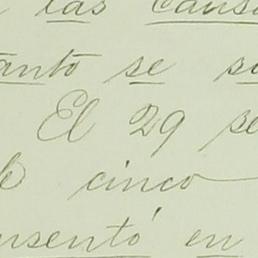 las causa
anto se su
El 29 se
de cinco
nsentó en